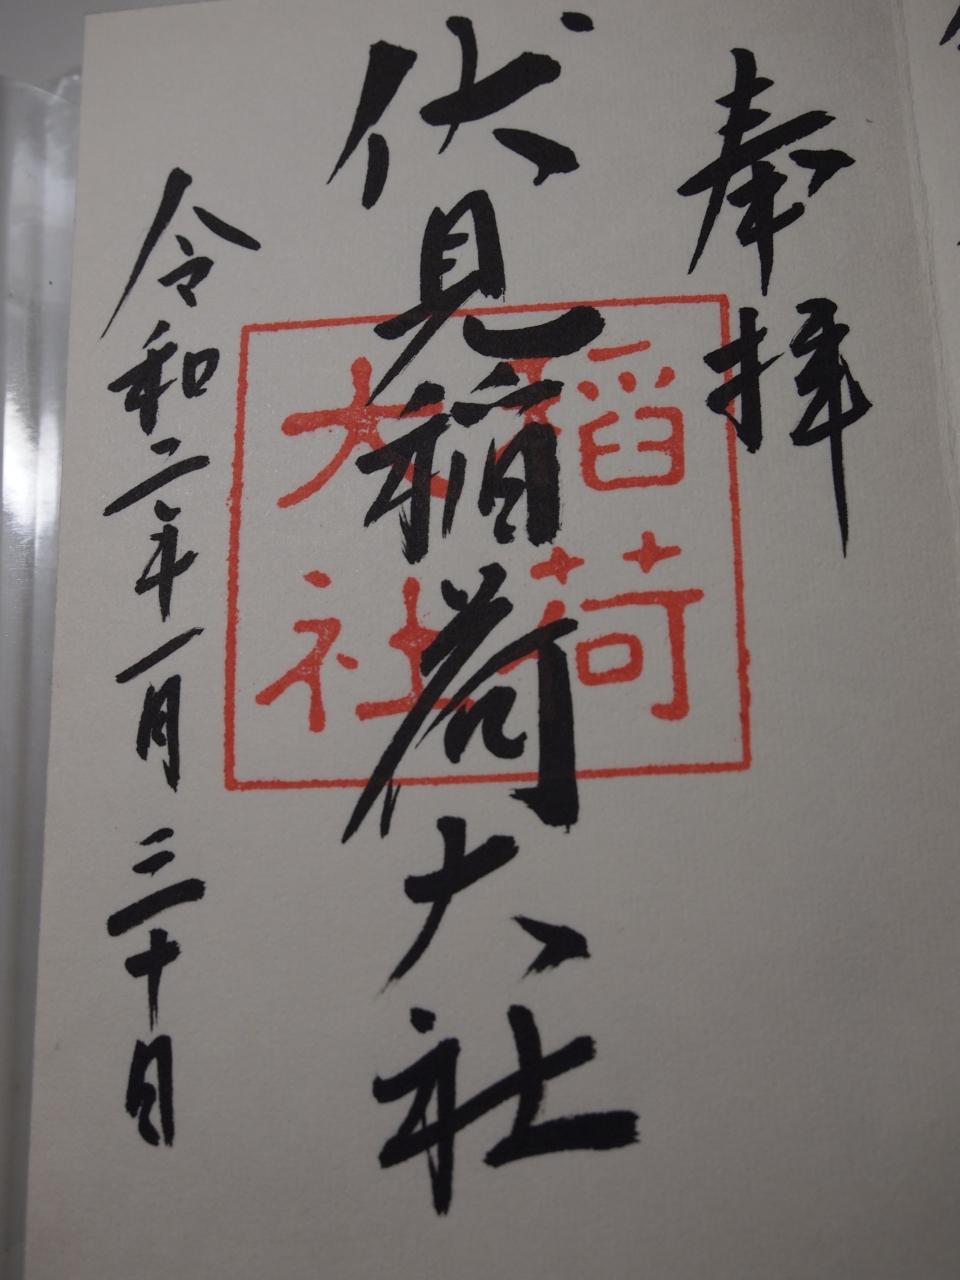 奉拝
伏見稲荷大社
稲荷
大社
令和二年一月三十日